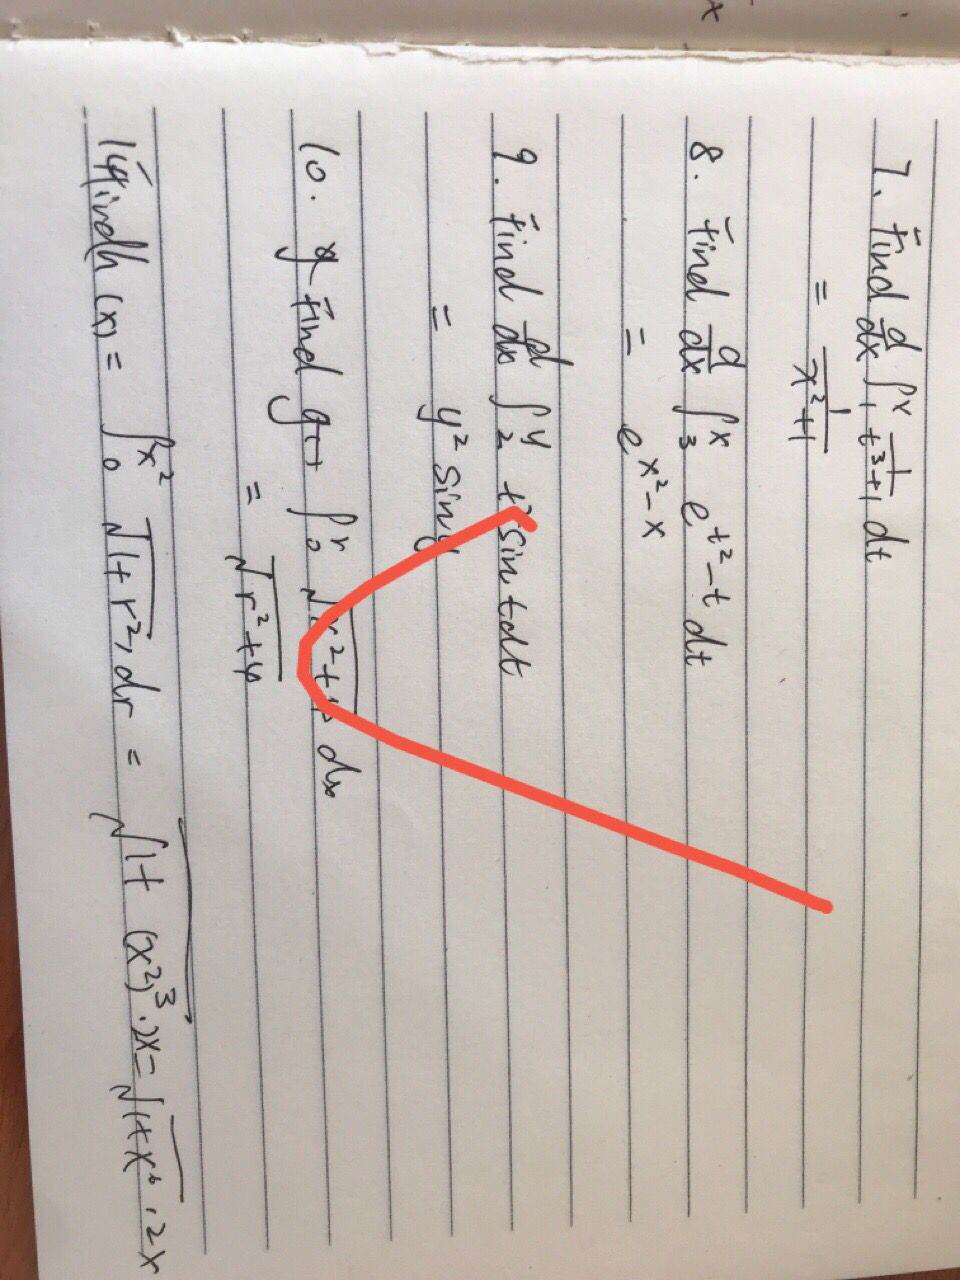 x
7. Find d/dx ∫₁ˣ 1/(t³+1) dt
= 1/(x²+1)
8. Find d/dx ∫₃ˣ e^(t²-t) dt
= e^(x²-x)
9. Find d/dx ∫₂ʸ t² sin t dt
= y² sin y
10. Find g(r) ∫₀ʳ √(r²+4) dx
= √(r²+4)
14 Find h(x) = ∫₀^(x²) √(1+r²) dr = √(1+(x²)³) · 2x = √(1+x⁶) · 2x